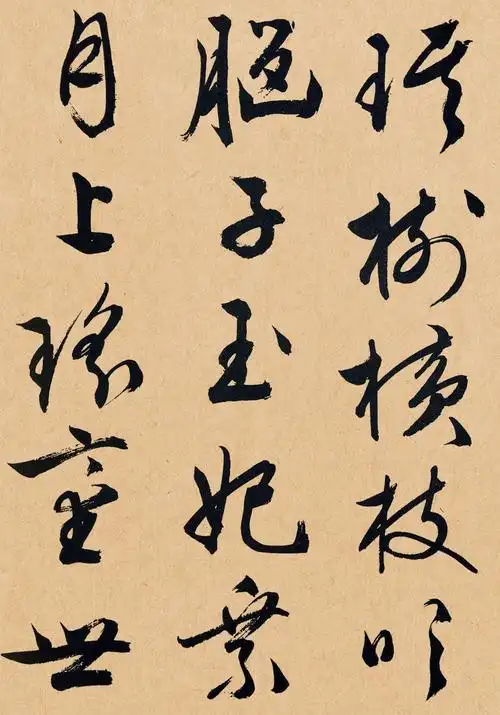 琪樹橫枝吹
腦子玉妃乘
月上瑤臺世